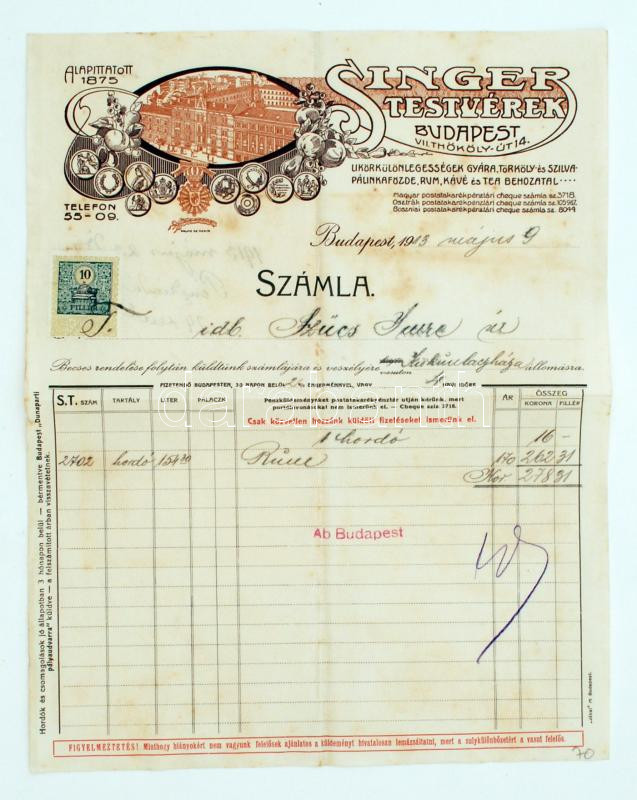 ALAPITTATOTT
1875
SINGER
TESTVÉREK
BUDAPEST
VII. THÖKÖLY-ÚT 14.
LIKÖRKÜLÖNLEGESSÉGEK GYÁRA, TÖRKÖLY- ÉS SZILVA-
PÁLINKAFŐZDE, RUM, KÁVÉ ÉS TEA BEHOZATAL
Magyar postatakarékpénztári cheque számla sz. 3718.
Osztrák postatakarékpénztári cheque számla sz. 105967.
Boszniai postatakarékpénztári cheque számla sz. 8049.
TELEFON
55-09.
Budapest, 1913 május 9
SZÁMLA.
10
FILLÉR
T. idb. Szücs Imre úr
Becses rendelése folytán küldtünk számlájára és veszélyére Kiskunlaczháza állomásra.
vasuton
FIZETENDŐ BUDAPESTEN, 30 NAPON BELÜL 2% ENGEDMÉNNYEL, VAGY 4 HAVI IDŐRE
S.T. SZÁM TARTÁLY LITER PALACZK
Pénzküldeményeket postatakarékpénztár utján kérünk, mert
portólevonásokat nem ismerünk el. — Cheque szla 3718.
Csak közvetlen hozzánk küldött fizetéseket ismerünk el.
ÁR ÖSSZEG
KORONA FILLÉR
1 hordó 16 -
2702 hordó 154 30 Rum 170 262 31
Kor 278 31
Ab Budapest
Hordók és csomagolások jó állapotban 3 hónapon belül — bérmentve Budapest „Dunaparti
pályaudvarra" küldve — a felszámított árban visszavétetnek.
FIGYELMEZTETÉS! Minthogy hiányokért nem vagyunk felelősek ajánlatos a küldeményt hivatalosan lemázsáltatni, mert a sulykülönbözetért a vasut felelős.
70